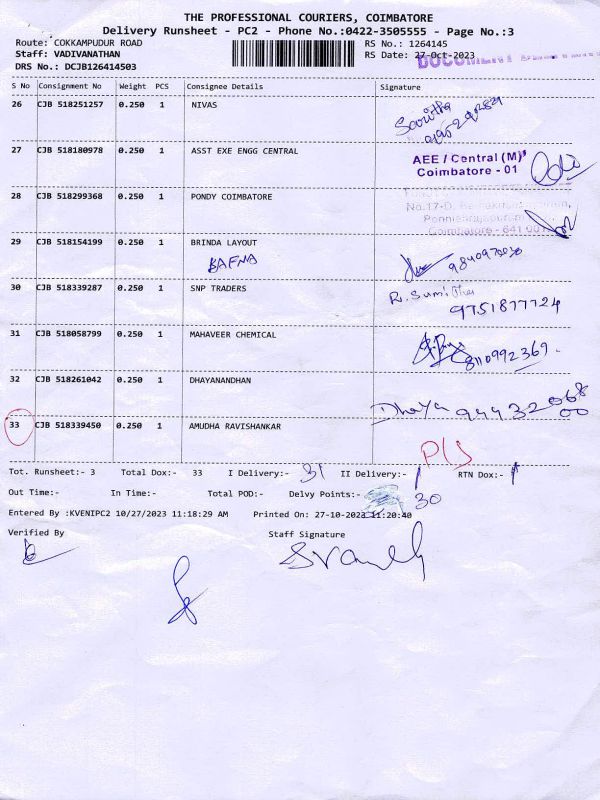 THE PROFESSIONAL COURIERS, COIMBATORE
Delivery Runsheet - PC2 - Phone No.:0422-3505555 - Page No.:3
Route: COKKAMPUDUR ROAD RS No.: 1264145
Staff: VADIVANATHAN RS Date: 27-Oct-2023
DOCUMENT
DRS No.: DCJB126414503
S No Consignment No Weight PCS Consignee Details Signature
26 CJB 518251257 0.250 1 NIVAS
27 CJB 518180978 0.250 1 ASST EXE ENGG CENTRAL
AEE / Central (M)
Coimbatore - 01
28 CJB 518299368 0.250 1 PONDY COIMBATORE
Coimbatore - 641 001
29 CJB 518154199 0.250 1 BRINDA LAYOUT
BAFNA
30 CJB 518339287 0.250 1 SNP TRADERS R. Sumithra
9751877724
31 CJB 518058799 0.250 1 MAHAVEER CHEMICAL
8110992369.
32 CJB 518261042 0.250 1 DHAYANANDHAN
Dhaya
33 CJB 518339450 0.250 1 AMUDHA RAVISHANKAR
P/S
Tot. Runsheet:- 3 Total Dox:- 33 I Delivery:- 31 II Delivery:- 1 RTN Dox:- 1
Out Time:- In Time:- Total POD:- Delvy Points:- 30
Entered By :KVENIPC2 10/27/2023 11:18:29 AM Printed On: 27-10-2023 11:20:40
Verified By Staff Signature